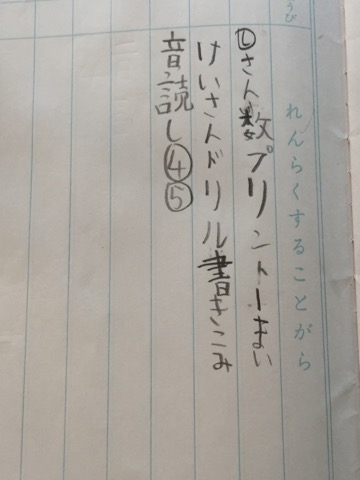 うび
れんらくすることがら
Ⓛさん数プリント一まい
けいさんドリル書きこみ
音読し④⑤